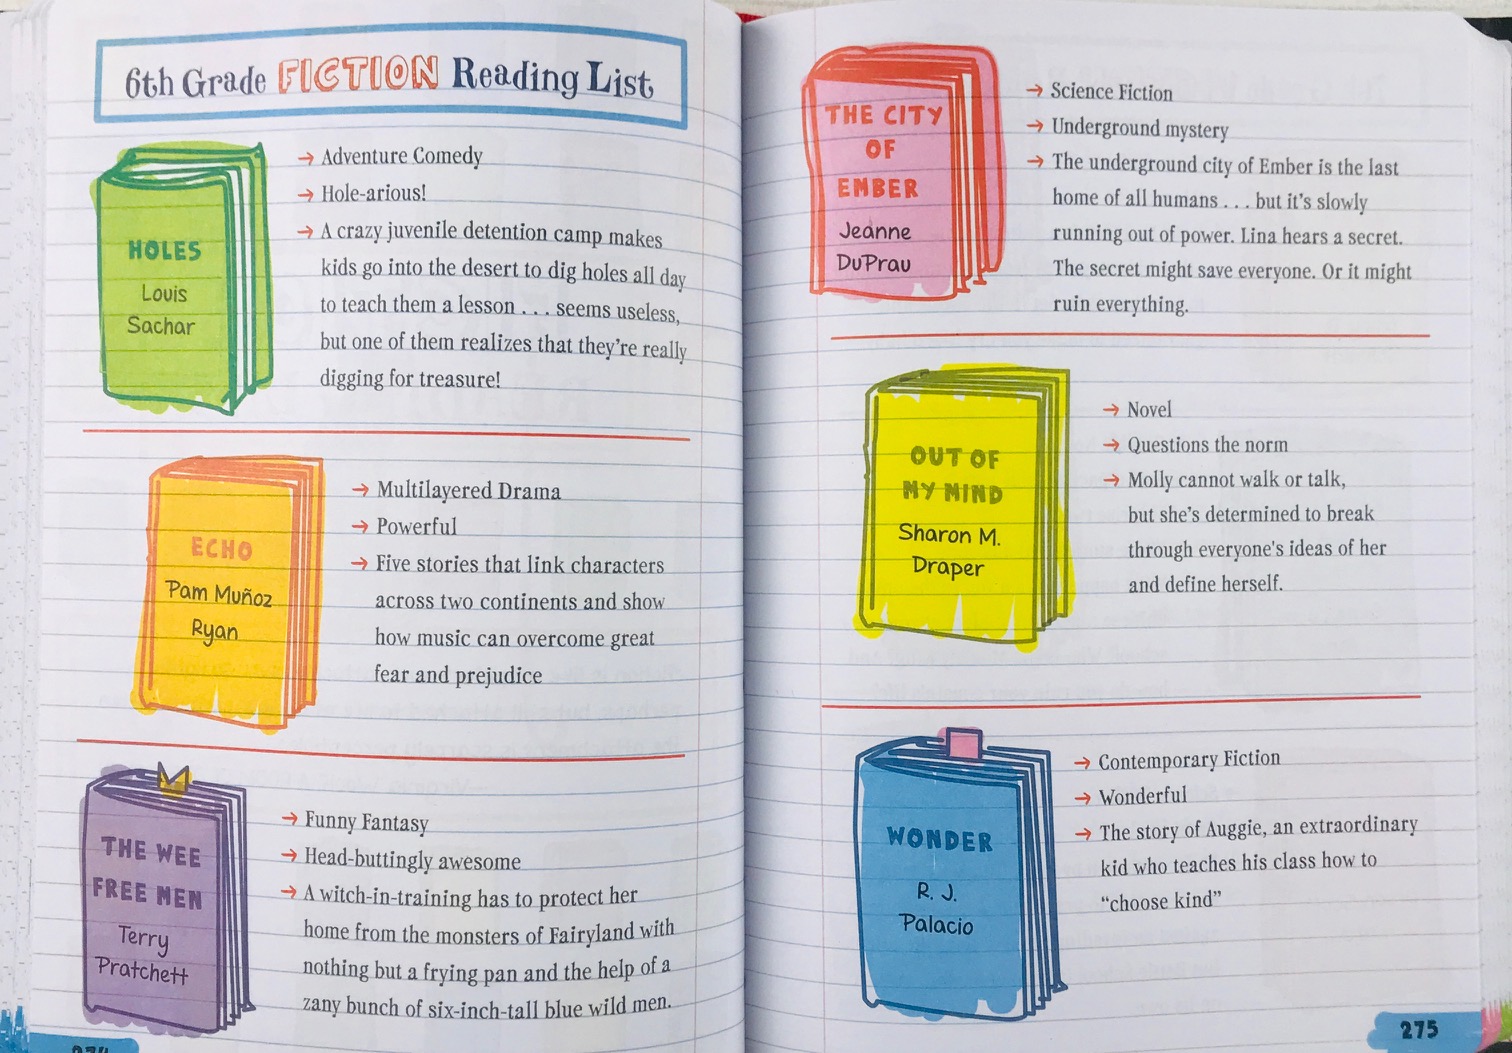 6th Grade FICTION Reading List
HOLES
Louis
Sachar
→ Adventure Comedy
→ Hole-arious!
→ A crazy juvenile detention camp makes
kids go into the desert to dig holes all day
to teach them a lesson . . . seems useless,
but one of them realizes that they're really
digging for treasure!
ECHO
Pam Muñoz
Ryan
→ Multilayered Drama
→ Powerful
→ Five stories that link characters
across two continents and show
how music can overcome great
fear and prejudice
THE WEE
FREE MEN
Terry
Pratchett
→ Funny Fantasy
→ Head-buttingly awesome
→ A witch-in-training has to protect her
home from the monsters of Fairyland with
nothing but a frying pan and the help of a
zany bunch of six-inch-tall blue wild men.
THE CITY
OF
EMBER
Jeanne
DuPrau
→ Science Fiction
→ Underground mystery
→ The underground city of Ember is the last
home of all humans . . . but it's slowly
running out of power. Lina hears a secret.
The secret might save everyone. Or it might
ruin everything.
OUT OF
MY MIND
Sharon M.
Draper
→ Novel
→ Questions the norm
→ Molly cannot walk or talk,
but she's determined to break
through everyone's ideas of her
and define herself.
WONDER
R. J.
Palacio
→ Contemporary Fiction
→ Wonderful
→ The story of Auggie, an extraordinary
kid who teaches his class how to
"choose kind"
275